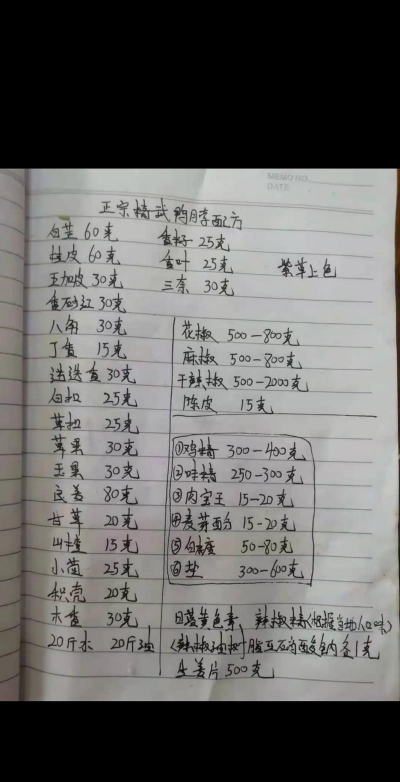 MEMO NO.
DATE
正宗精武鸭脖配方
白芷 60克
桂皮 60克
五加皮 30克
香砂红 30克
八角 30克
丁香 15克
迷迭香 30克
白扣 25克
草扣 25克
草果 30克
玉果 30克
良姜 80克
甘草 20克
山楂 15克
小茴 25克
积壳 20克
木香 30克
20斤水 20斤油
香籽 25克
香叶 25克
三奈 30克
紫草上色
花椒 500-800克
麻椒 500-800克
干辣椒 500-2000克
陈皮 15克
①鸡精 300-400克
②味精 250-300克
③肉宝王 15-20克
④麦芽酚 15-20克
⑤白糖 50-80克
⑥盐 300-600克
日落黄色素 辣椒精(根据当地人口味)
(辣椒油树脂
各1克
生姜片 500克